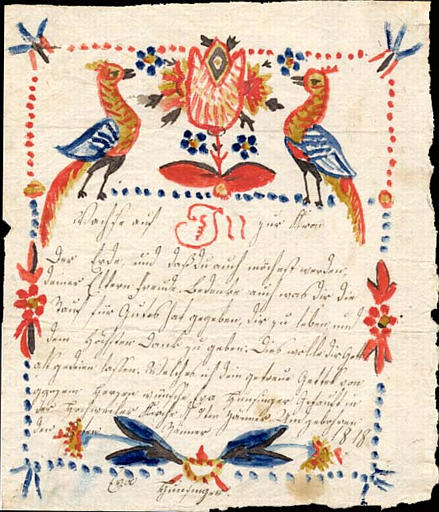 Wachse auf Im zur Kron
Der Erde, und daß du auch möchest werden,
deiner Eltern Freude. Bedenke auch was dir die
Tauf für Gutes hat gegeben, dir zu leben, und
dem Höchsten Dank zu geben. Dies wolle dir Gott
all gedeien lassen. Welches ich dein getreue Gettel von
ganzem Herzen wünsche. Eva Hunsinger Getauft in
der Kirche Jänner Und gebohren
den Jänner 1818
Eva Hunsinger